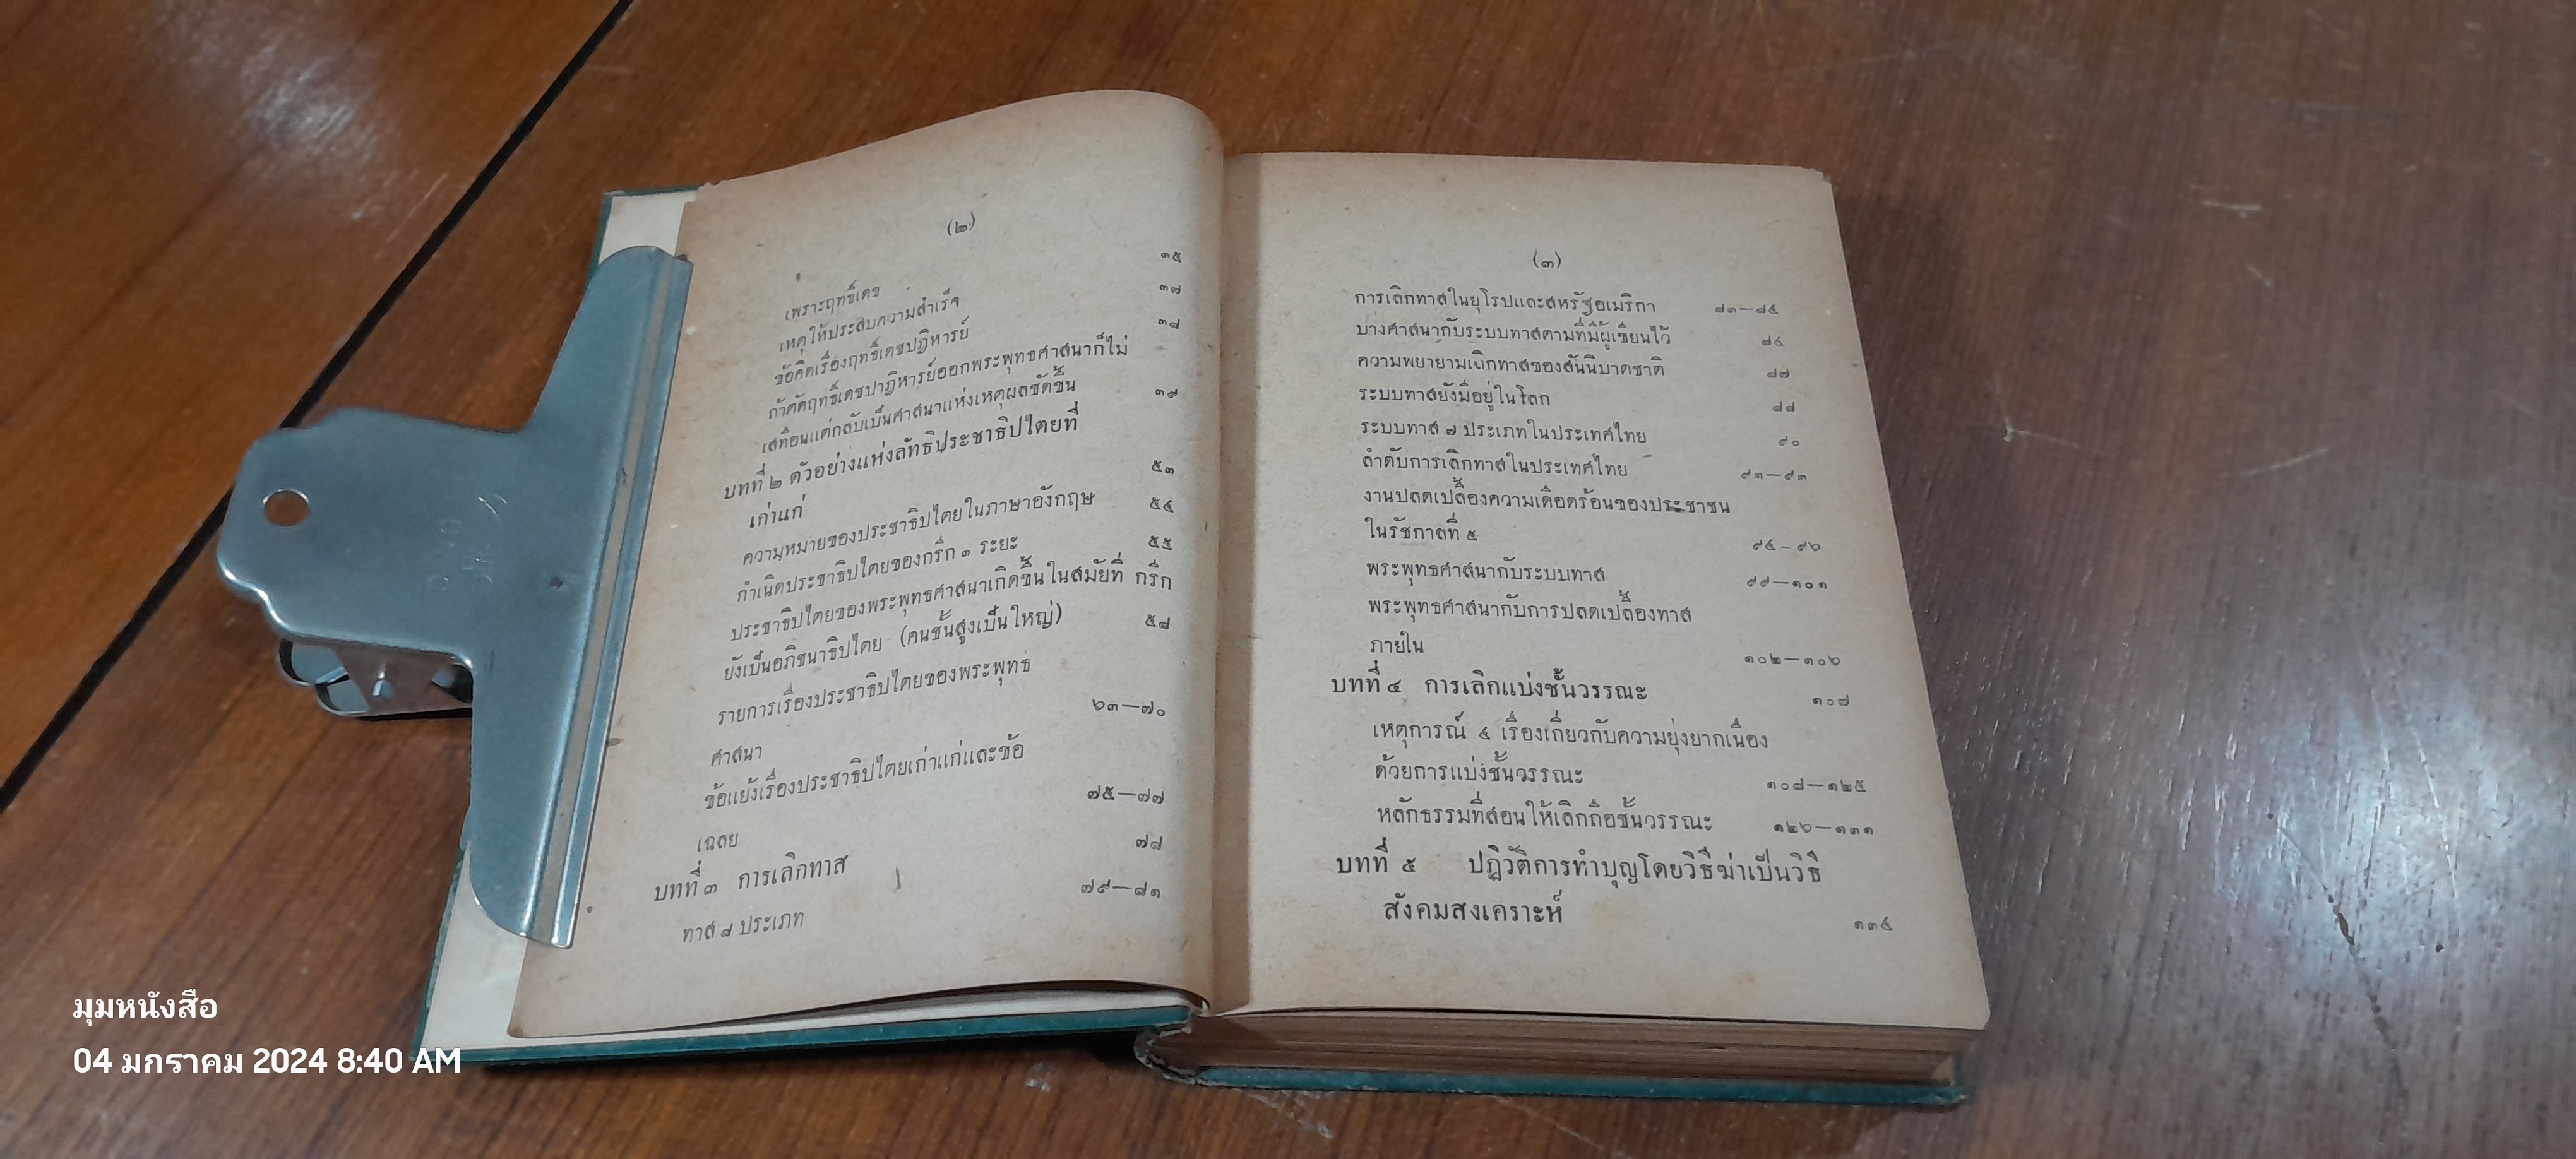 (๒)
เพราะฤทธิ์เดช ๓๕
เหตุให้ประสบความสำเร็จ ๓๗
ข้อคิดเรื่องฤทธิ์เดชปฏิหารย์ ๓๘
ถ้าตัดฤทธิ์เดชปาฏิหารย์ออกพระพุทธศาสนาก็ไม่
เสทือนแต่กลับเป็นศาสนาแห่งเหตุผลชัดขึ้น ๓๙
บทที่ ๒ ตัวอย่างแห่งลัทธิประชาธิปไตยที่
เก่าแก่ ๕๓
ความหมายของประชาธิปไตยในภาษาอังกฤษ ๕๔
กำเนิดประชาธิปไตยของกรีก ๓ ระยะ ๕๕
ประชาธิปไตยของพระพุทธศาสนาเกิดขึ้นในสมัยที่ กรีก
ยังเป็นอภิชนาธิปไตย (คนชั้นสูงเป็นใหญ่) ๕๘
รายการเรื่องประชาธิปไตยของพระพุทธ
ศาสนา ๖๓—๗๐
ข้อแย้งเรื่องประชาธิปไตยเก่าแก่และข้อ
เฉลย ๗๕—๗๗
บทที่ ๓ การเลิกทาส ๗๘
ทาส ๘ ประเภท ๗๙—๘๑
(๓)
การเลิกทาสในยุโรปและสหรัฐอเมริกา ๘๓—๘๕
บางศาสนากับระบบทาสตามที่มีผู้เขียนไว้ ๘๔
ความพยายามเลิกทาสของสันนิบาตชาติ ๘๗
ระบบทาสยังมีอยู่ในโลก ๘๘
ระบบทาส ๗ ประเภทในประเทศไทย ๙๐
ลำดับการเลิกทาสในประเทศไทย ๙๑—๙๓
งานปลดเปลื้องความเดือดร้อนของประชาชน
ในรัชกาลที่ ๕ ๙๔-๙๖
พระพุทธศาสนากับระบบทาส ๙๙—๑๐๑
พระพุทธศาสนากับการปลดเปลื้องทาส
ภายใน ๑๐๒—๑๐๖
บทที่ ๔ การเลิกแบ่งชั้นวรรณะ ๑๐๗
เหตุการณ์ ๔ เรื่องเกี่ยวกับความยุ่งยากเนื่อง
ด้วยการแบ่งชั้นวรรณะ ๑๐๘—๑๒๕
หลักธรรมที่สอนให้เลิกถือชั้นวรรณะ ๑๒๖—๑๓๑
บทที่ ๕ ปฏิวัติการทำบุญโดยวิธีฆ่าเป็นวิธี
สังคมสงเคราะห์ ๑๓๔
มุมหนังสือ
04 มกราคม 2024 8:40 AM